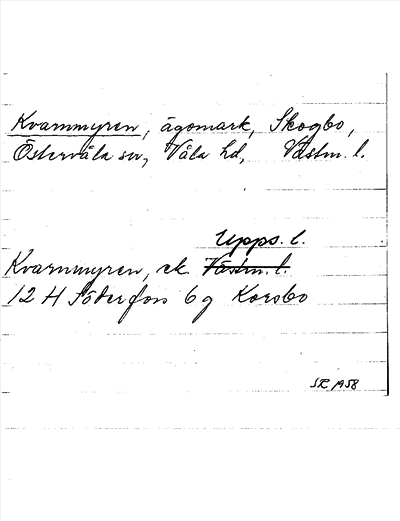 Kvarnmyren, ägomark, Skogbo,
Östervåla sn, Våla hd, Västm. l.
Upps. l.
Kvarnmyren, ek. Västm. l.
12 H Söderfors 6 g Korsbo
SR 1958